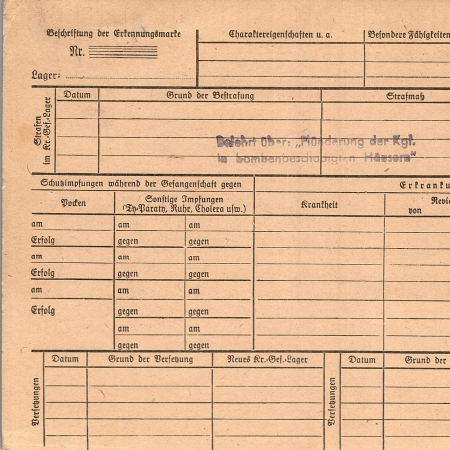 Beschriftung der Erkennungsmarke
Nr.
Lager:
Charaktereigenschaften u. a.
Besondere Fähigkeiten
Strafen
im Kr.-Gef.-Lager
Datum
Grund der Bestrafung
Strafmaß
Belehrt über: „Plünderung der Kgf.
in bombenbeschädigten Häusern"
Schutzimpfungen während der Gefangenschaft gegen
Erkranku
Pocken
Sonstige Impfungen
(Ty-Paraty, Ruhr, Cholera usw.)
Krankheit
Revie
von
am am am
Erfolg gegen gegen
am am am
Erfolg gegen gegen
am am am
Erfolg gegen gegen
am am
gegen gegen
Versetzungen
Datum
Grund der Versetzung
Neues Kr.-Gef.-Lager
Versetzungen
Datum
Grund der